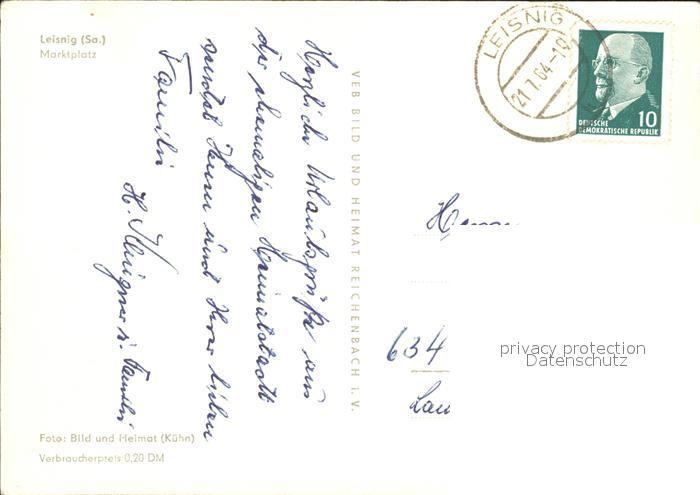 Leisnig (Sa.)
Marktplatz
Herzliche Urlaubsgrüße aus
der ehemaligen Heimatstadt
sendet Ihnen und Ihrer lieben
Familie
H. u. Familie
Foto: Bild und Heimat (Kühn)
Verbraucherpreis 0,20 DM
VEB BILD UND HEIMAT REICHENBACH I. V.
LEISNIG
21.7.64-19
10
DEUTSCHE
DEMOKRATISCHE REPUBLIK
Herrn
634
Lau
privacy protection
Datenschutz